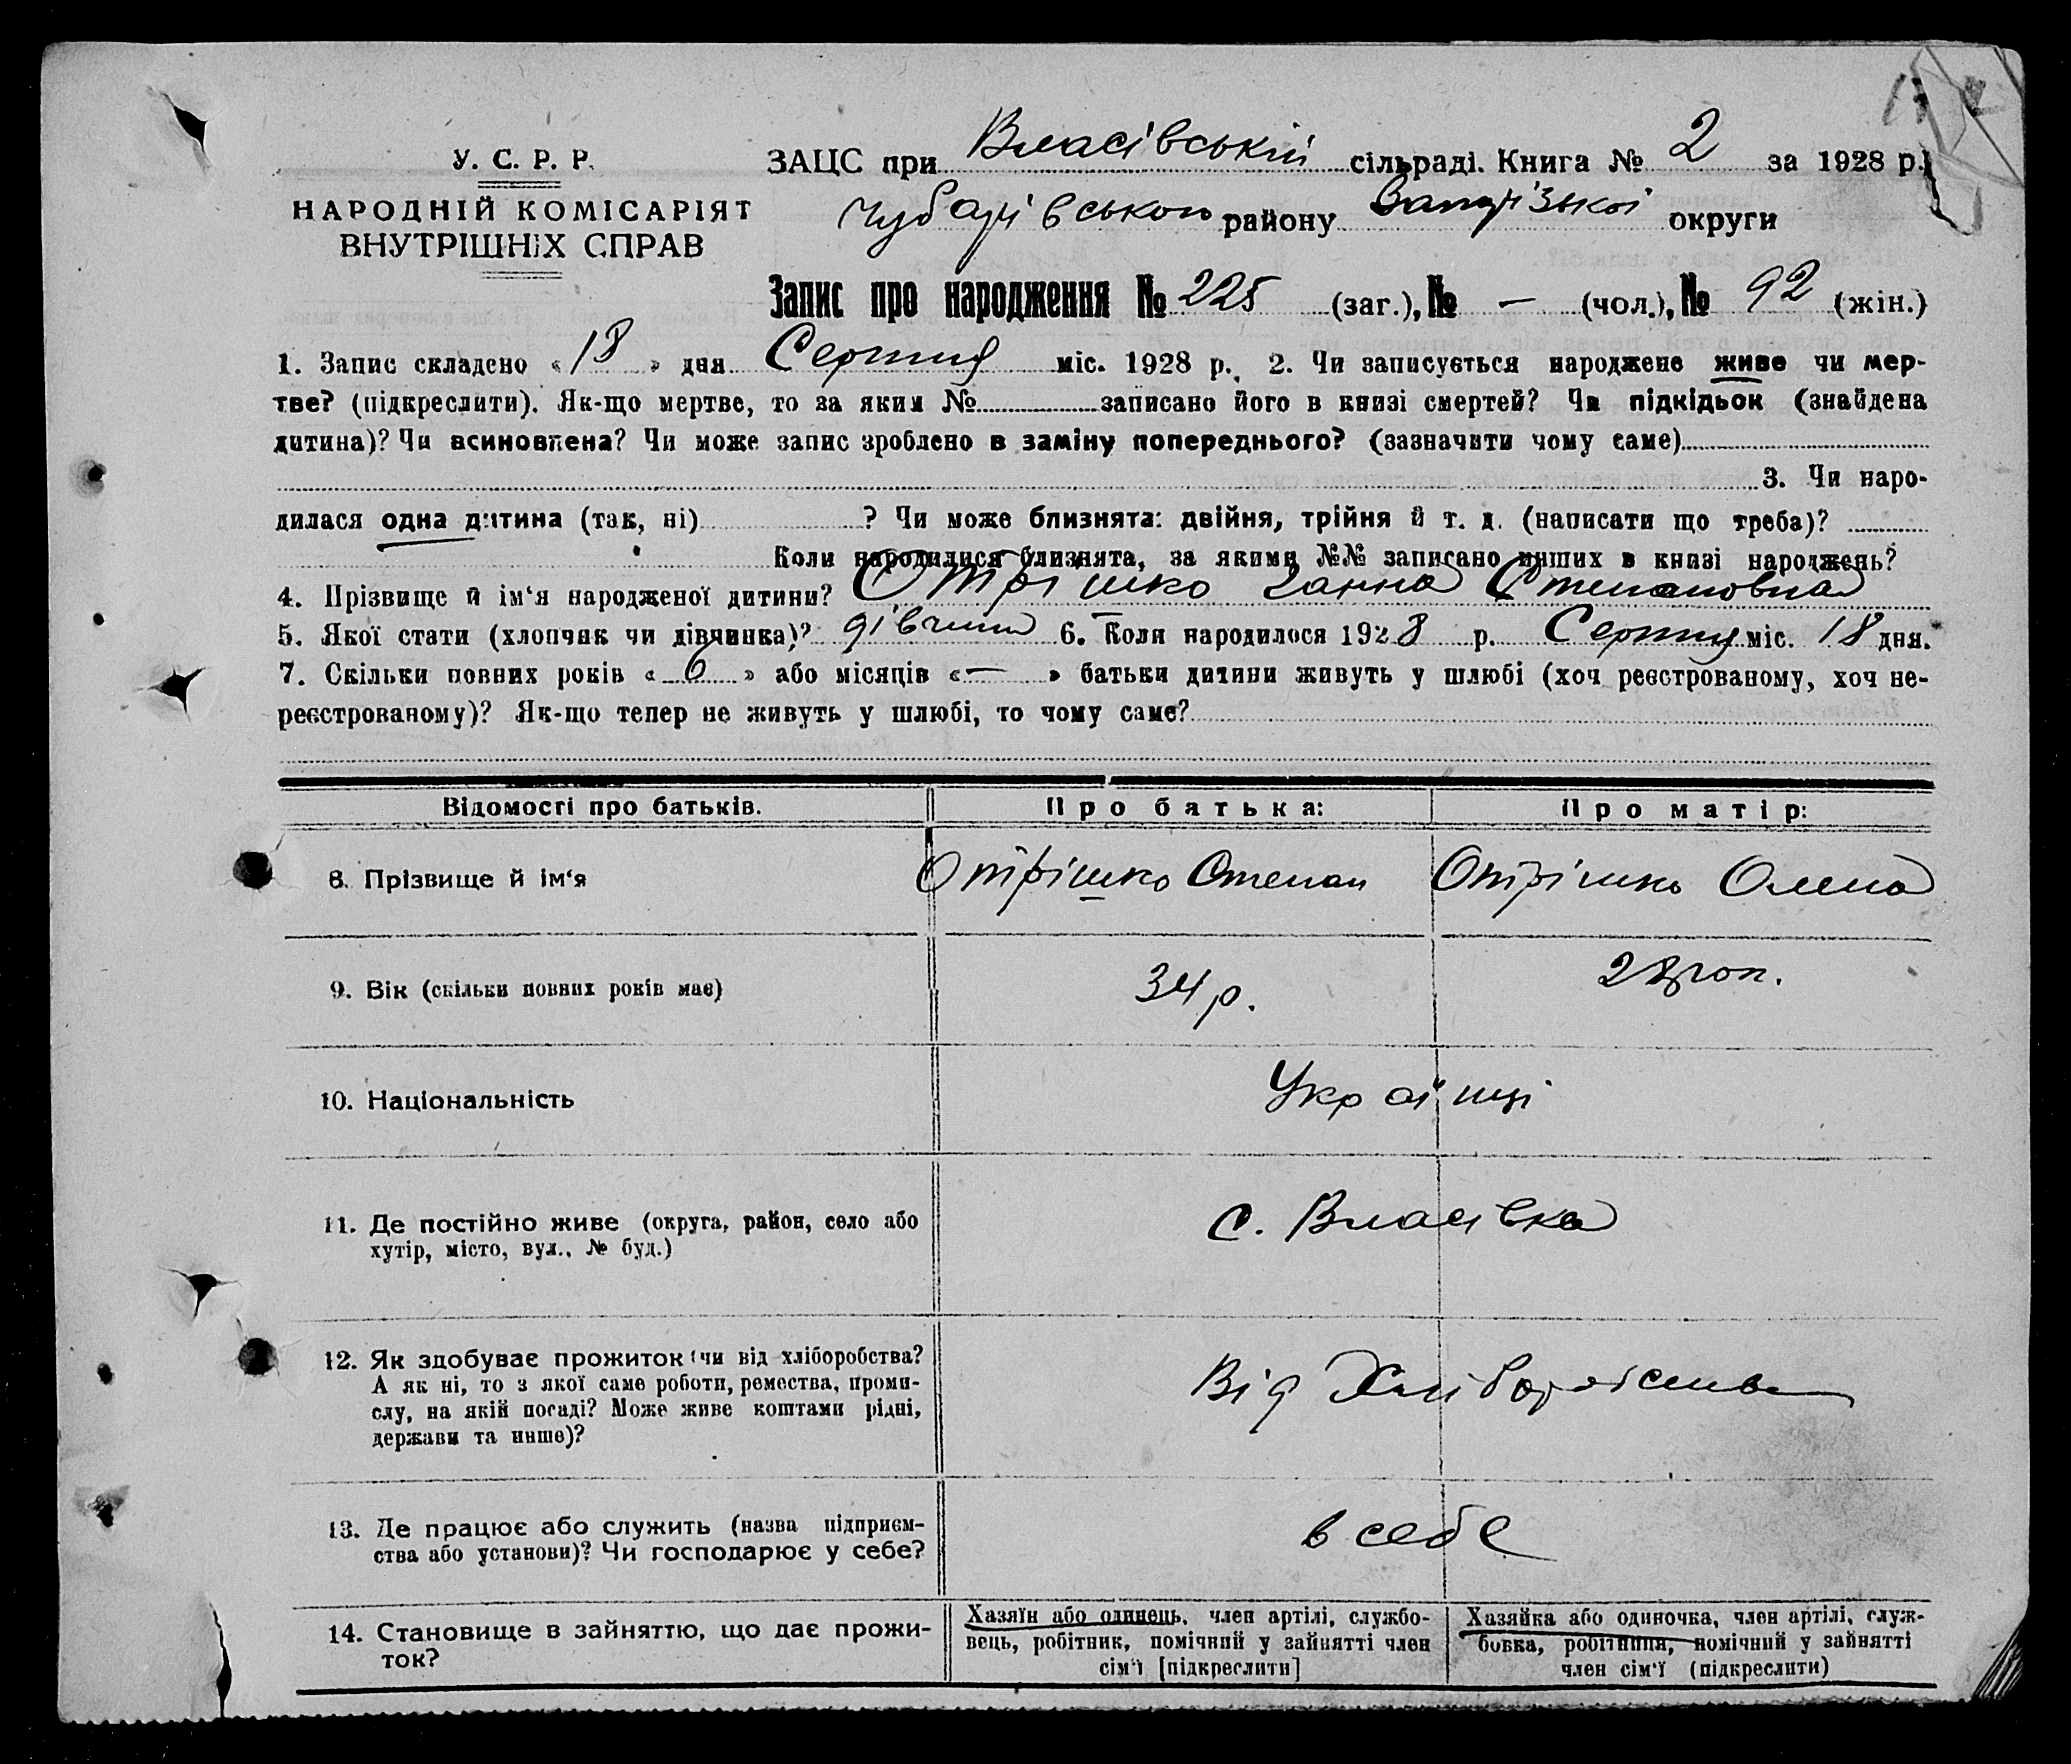 У. С. Р. Р.
НАРОДНІЙ КОМІСАРІЯТ
ВНУТРІШНІХ СПРАВ
ЗАЦС при Власівській сільраді. Книга № 2 за 1928 р.
Чубарівського району Запорізької округи
Запис про народження № 225 (заг.), № — (чол.), № 92 (жін.)
1. Запис складено «18» дня Серпня міс. 1928 р. 2. Чи записується народжене живе чи мер-
тве? (підкреслити). Як-що мертве, то за яким № записано його в книзі смертей? Чи підкідьок (знайдена
дитина)? Чи всиновлена? Чи може запис зроблено в заміну попереднього? (зазначити чому саме)
3. Чи наро-
дилася одна дитина (так, ні) ? Чи може близнята: двійня, трійня й т. д. (написати що треба)?
Коли народилися близнята, за якими №№ записано инших в книзі народжень?
4. Прізвище й ім‘я народженої дитини? Отрішко Ганна Степановна
5. Якої стати (хлопчик чи дівчинка)? дівчина 6. Коли народилося 1928 р. Серпня міс. 18 дня.
7. Скільки повних років «6» або місяців «—» батьки дитини живуть у шлюбі (хоч реєстрованому, хоч не-
реєстрованому)? Як-що тепер не живуть у шлюбі, то чому саме?
Відомості про батьків. Про батька: Про матір:
8. Прізвище й ім‘я Отрішко Степан Отрішко Олена
9. Вік (скільки повних років має) 34 р. 28
10. Національність Українці
11. Де постійно живе (округа, район, село або
хутір, місто, вул., № буд.) с. Власівка
12. Як здобуває прожиток (чи від хліборобства?
А як ні, то з якої саме роботи, ремества, проми-
слу, на якій посаді? Може живе коштами рідні,
держави та инше)? Від Хліборобства
13. Де працює або служить (назва підприєм-
ства або установи)? Чи господарює у себе? в себе
14. Становище в зайняттю, що дає прожи-
ток?
Хазяїн або одинець, член артілі, службо-
вець, робітник, помічний у зайнятті член
сім‘ї [підкреслити]
Хазяйка або одиночка, член артілі, служ-
бовка, робітниця, помічний у зайнятті
член сім‘ї (підкреслити)